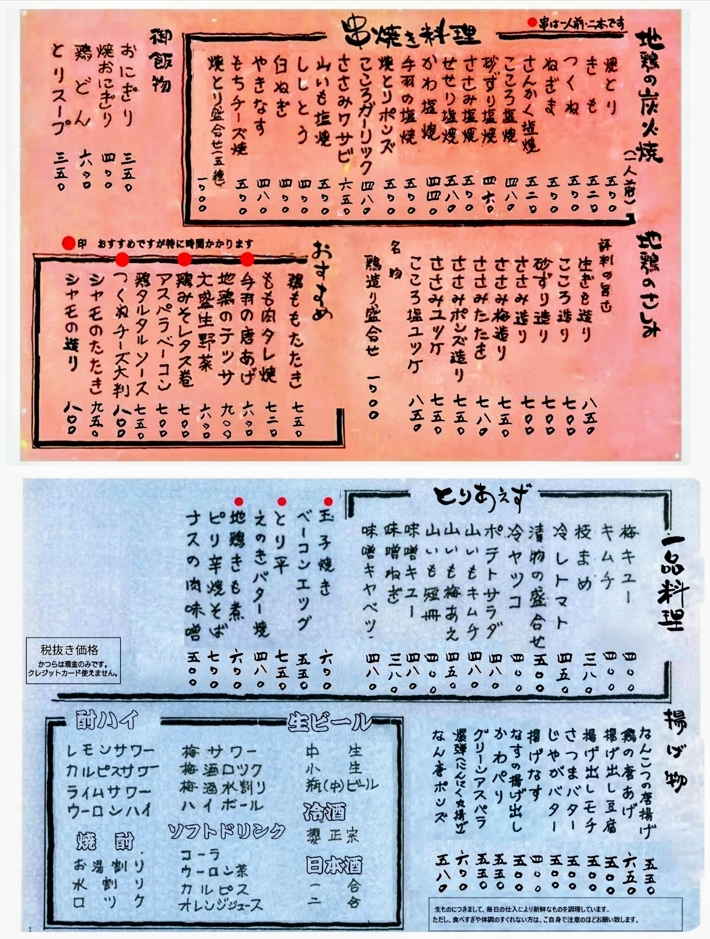 地鶏の炭火焼
(一人前)
串焼き料理
●串は一人前・二本です
焼とり 五五〇
きも 五二〇
つくね 五五〇
ねぎま 五五〇
さんかく塩焼 五二〇
こころ塩焼 四八〇
砂ずり塩焼 四六〇
ささみ塩焼 五五〇
せせり塩焼 五八〇
かわ塩焼 四四〇
手羽の塩焼 五五〇
焼とりポンズ 五五〇
こころガーリック 四八〇
ささみワサビ 六五〇
山いも塩焼 五五〇
ししとう 四五〇
白ねぎ 四五〇
やきなす 四八〇
もちチーズ焼 五五〇
焼とり盛合せ(五種)
御飯物
おにぎり 三五〇
焼おにぎり 四〇〇
鶏どん 六〇〇
とりスープ 三五〇
地鶏のさしみ
評判の旨さ
生ぎも造り 八五〇
こころ造り 七〇〇
砂ずり造り 七〇〇
ささみ造り 七五〇
ささみ梅造り 七五〇
ささみたたき 七八〇
ささみポンズ造り 七五〇
ささみユッケ 七五〇
こころ塩ユッケ 八五〇
名物
鶏造り盛合せ
おすすめ
●印 おすすめですが特に時間かかります
鶏ももたたき 七五〇
もも肉タレ焼 七二〇
手羽の唐あげ 六〇〇
地鶏のテッサ 九〇〇
大盛生野菜 六〇〇
鶏みそレタス巻 七〇〇
アスパラベーコン 七〇〇
鶏タルタルソース 七五〇
つくねチーズ大判 八〇〇
シャモのたたき 九五〇
シャモの造り 八〇〇
一品料理
とりあえず
梅キュー 四〇〇
キムチ 四〇〇
枝まめ 三八〇
冷しトマト 四五〇
漬物の盛合せ 五〇〇
冷ヤッコ 四〇〇
ポテトサラダ 四八〇
山いもキムチ 四八〇
山いも梅あえ 四八〇
山いも短冊 四五〇
味噌キュー 四〇〇
味噌ねぎ 三八〇
味噌キャベツ 四八〇
玉子焼き 六〇〇
ベーコンエッグ 五五〇
とり平 七五〇
えのきバター焼 四八〇
地鶏きも煮 六〇〇
ピリ辛焼そば 七五〇
ナスの肉味噌 五〇〇
税抜き価格
かつらは現金のみです。
クレジットカード使えません。
揚げ物
なんこつの唐揚げ 五五〇
鶏の唐あげ 六五〇
揚げ出し豆腐 五〇〇
揚げ出しモチ 五〇〇
さつまバター 五〇〇
じゃがバター 五〇〇
揚げなす 四〇〇
なすの揚げ出し 五〇〇
かわパリ 五五〇
グリーンアスペラ 五五〇
爆弾(にんにく丸揚げ) 六〇〇
なん唐ポンズ 五八〇
生ビール
中 生
小 生
瓶(中)ビール
冷酒
櫻正宗
日本酒
一 合
二 合
酎ハイ
レモンサワー
カルピスサワー
ライムサワー
ウーロンハイ
梅サワー
梅酒ロック
梅酒水割り
ハイボール
焼酎
お湯割り
水割り
ロック
ソフトドリンク
コーラ
ウーロン茶
カルピス
オレンジジュース
生ものにつきまして、毎日の仕入により新鮮なものを調理しています。
ただし、食べすぎや体調のすぐれない方は、ご自身で注意のほどお願い致します。